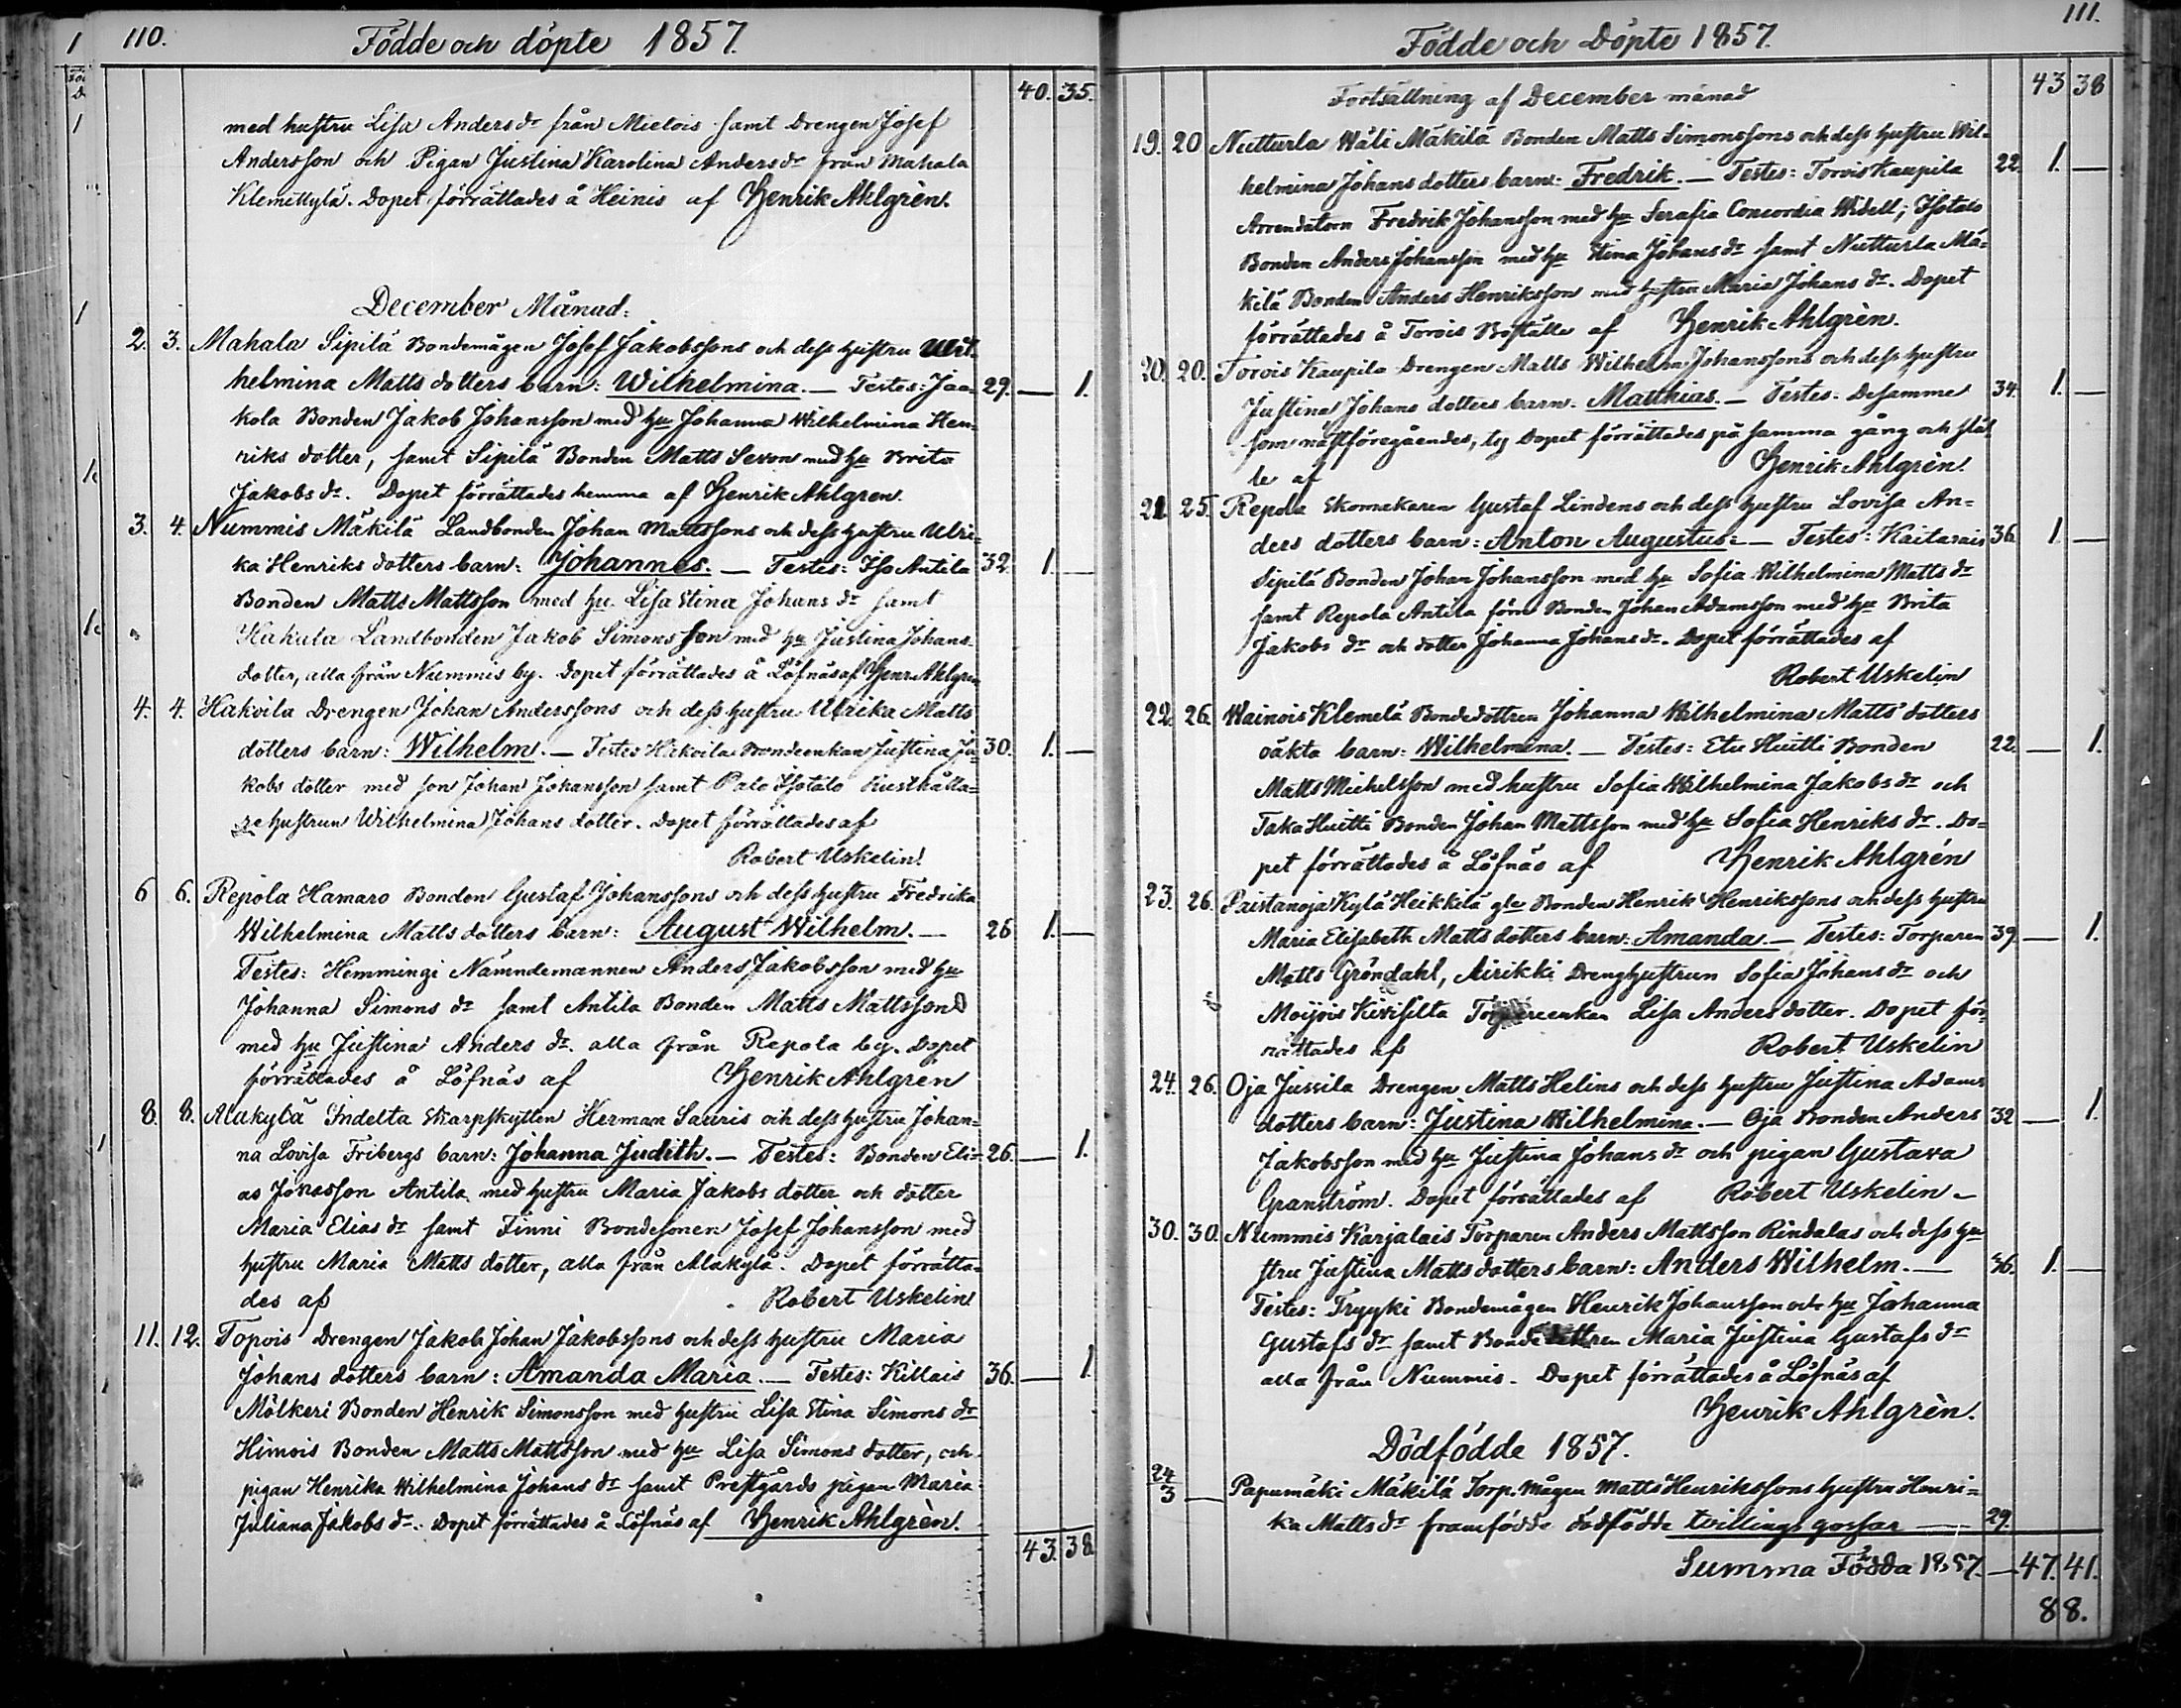 110.
Födde och döpte 1857.
40. 35.
med hustru Lisa Anders dr från Mietois samt Drengen Josef
Andersson och Pigan Justina Karolina Anders dr från Mahala
Klemettylä. Dopet förrättades å Heinis af Henrik Ahlgrèn.
December Månad:
2. 3. Mahala Sipilä Bondemågen Josef Jakobssons och dess hustru Wil-
helmina Matts dotters barn: Wilhelmina. — Testes: Jaa- 29. — 1.
kola Bonden Jakob Johansson med hu Johanna Wilhelmina Hen-
riks dotter, samt Sipilä Bonden Matts Sevon med hu Brita
Jakobs dr. Dopet förrättades hemma af Henrik Ahlgren.
3. 4. Nummis Mäkilä Landbonden Johan Mattssons och dess hustru Ulri-
ka Henriks dotters barn: Johannes. — Testes: Iso Antila 32. 1. —
Bonden Matts Mattsson med hu. Lisa Stina Johans dr samt
Kakula Landbonden Jakob Simonsson med hu Justina Johans
dotter, alla från Nummis by. Dopet förrättades å Löfnäs af Henr. Ahlgren
4. 4. Hakoila Drengen Johan Anderssons och dess hustru Ulrika Matts
dotters barn: Wilhelm. — Testes Hakoila Bondeenkan Justina Ja- 30. 1. —
kobs dotter med son Johan Johansson samt Palo Isotalo Rusthålla-
re hustrun Wilhelmina Johans dotter. Dopet förrättades af
Robert Uskelin.
6 6. Repola Hamaro Bonden Gustaf Johanssons och dess hustru Fredrika
Wilhelmina Matts dotters barn: August Wilhelm. — 26 1. —
Testes: Hemmingi Nämndemannen Anders Jakobsson med hu
Johanna Simons dr samt Antila Bonden Matts Mattsson
med hu Justina Anders dr. alla från Repola by. Dopet
förrättades å Löfnäs af Henrik Ahlgrèn
8. 8. Alakylä Indelta Skarpskytten Herman Sauris och dess hustru Johan-
na Lovisa Fribergs barn: Johanna Judith. — Testes: Bonden Eli- 26. — 1.
as Jonasson Antila med hustru Maria Jakobs dotter och dotter
Maria Elias dr samt Finni Bondesonen Josef Johansson med
hustru Maria Matts dotter, alla från Alakylä. Dopet förrätta-
des af Robert Uskelin
11. 12. Topois Drengen Jakob Johan Jakobssons och dess hustru Maria
Johans dotters barn: Amanda Maria. — Testes: Killais 36. — 1.
Mölkeri Bonden Henrik Simonsson med hustru Lisa Stina Simons dr
Himois Bonden Matts Mattsson med hu Lisa Simons dotter, och
pigan Henrika Wilhelmina Johans dr samt Prestgårds pigan Maria
Juliana Jakobs dr. Dopet förrättades å Löfnäs af Henrik Ahlgrèn.
43. 38.
111.
Födde och Döpte 1857.
43 38
Fortsättning af December månad
19. 20 Nutturla Wäli Mäkilä Bonden Matts Simonssons och dess hustru Wil-
helmina Johans dotters barn: Fredrik. — Testes: Torois Kaupila 22. 1. —
Arrendatorn Fredrik Johansson med hu Serafia Concordia Widell; Isotalo
Bonden Anders Johansson med hu Stina Johans dr samt Nutturla Mä-
kilä Bonden Anders Henriksson med hustru Maria Johans dr. Dopet
förrättades å Torois Boställe af Henrik Ahlgrèn.
20. 20. Torois Kaupila Drengen Matts Wilhelm Johanssons och dess hustru
Justina Johans dotters barn. Matthias. — Testes: Desamme 34. 1. —
som nästföregåendes, ty Dopet förrättades på samma gång och stäl-
le af Henrik Ahlgrèn.
21 25. Repola Skomakaren Gustaf Lindens och dess hustru Lovisa An-
ders dotters barn: Anton Augustus: — Testes: Kaitarais 36. 1. —
Sipilä Bonden Johan Johansson med hu Sofia Wilhelmina Matts dr
samt Repola Antila förre Bonden Johan Adamsson med hu Brita
Jakobs dr och dotter Johanna Johans dr. Dopet förrättades af
Robert Uskelin
22. 26. Wainois Klemelä Bondedottren Johanna Wilhelmina Matts dotters
oäkta barn: Wilhelmina. — Testes: Etu Huitti Bonden 22. — 1.
Matts Michelsson med hustru Sofia Wilhelmina Jakobs dr och
Taka Huitti Bonden Johan Mattsson med hu Sofia Henriks dr. Do-
pet förrättades å Löfnäs af Henrik Ahlgrén
23. 26. Paistanoja Kylä Heikkilä gle Bonden Henrik Henrikssons och dess hustru
Maria Elisabeth Matts dotters barn: Amanda — Testes: Torparen 39. — 1.
Matts Gröndahl, Airikki Drenghustrun Sofia Johans dr och
Moijois Kivisilta Torpareenkan Lisa Anders dotter. Dopet för-
rättades af Robert Uskelin
24. 26. Oja Jussila Drengen Matts Helins och dess hustru Justina Adams
dotters barn: Justina Wilhelmina. — Oja Bonden Anders 32 — 1.
Jakobsson med hu Justina Johans dr och pigan Gustava
Granström. Dopet förrättades af Robert Uskelin —
30. 30. Nummis Karjalais Torparen Anders Mattsson Rindalas och dess hu-
stru Justina Matts dotters barn: Anders Wilhelm. — 36. 1. —
Testes: Tryyki Bondemågen Henrik Johansson och hu Johanna
Gustafs dr samt Bondedottren Maria Justina Gustafs dr
alla från Nummis. Dopet förrättades å Löfnäs af
Henrik Ahlgrèn.
Dödfödde 1857.
24/3 — Papumäki Mäkilä Torp. Mågen Matts Henrikssons hustru Henri-
ka Matts dr framfödde dödfödde tvillings gossar — 29.
Summa Födda 1857. — 47. 41.
88.